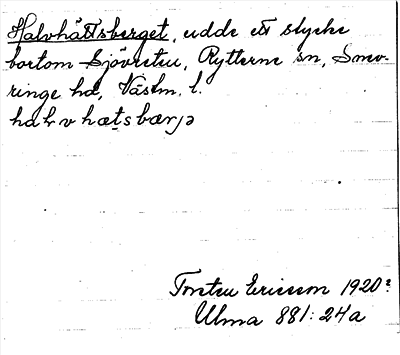 Halvhättsberget, udde ett stycke
bortom Sjövreten, Rytterne sn, Snev-
ringe hd, Västm. l.
halvhætsbærjə
Torsten Ericsson 1920?
Ulma 881:24a